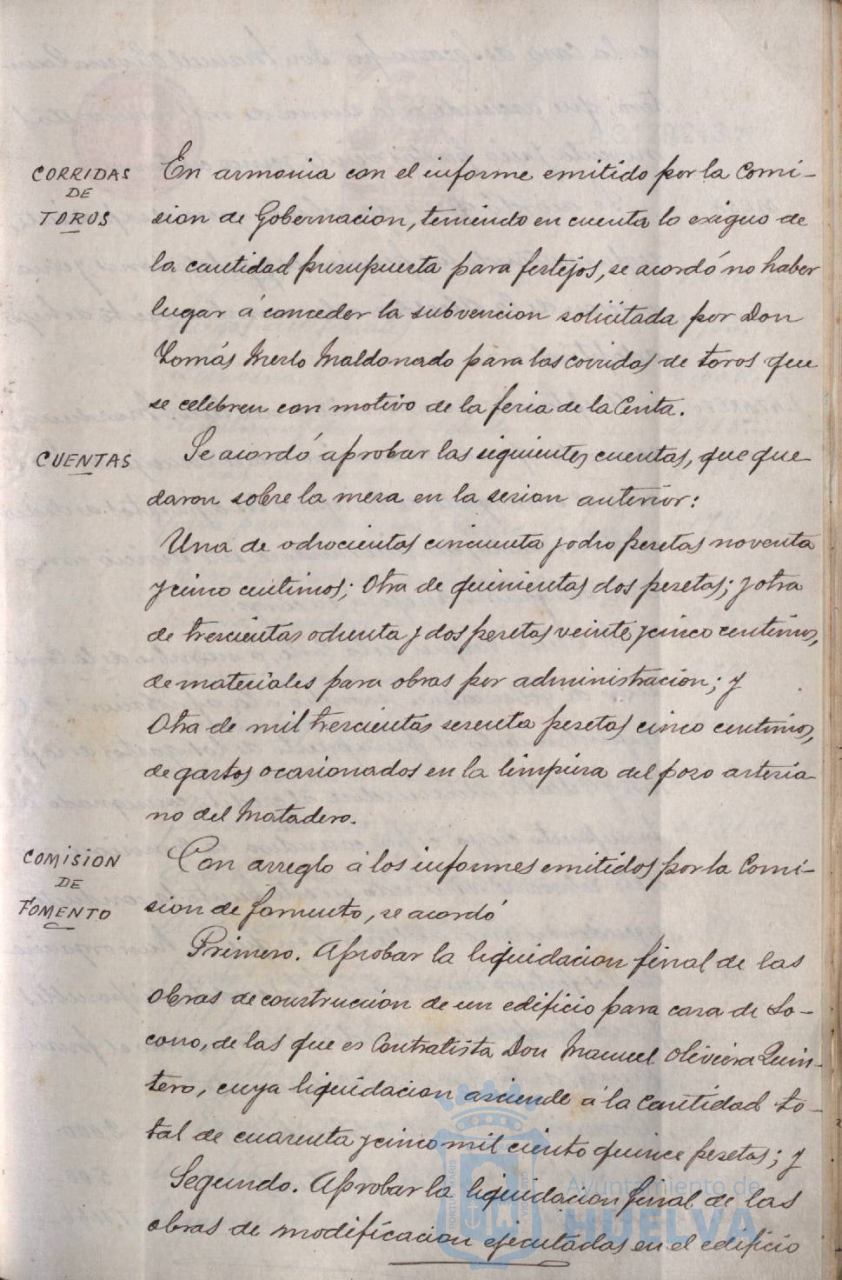 CORRIDAS
DE
TOROS
En armonia con el informe emitido por la Comi-
sion de Gobernacion, teniendo en cuenta lo exiguo de
la cantidad presupuesta para festejos, se acordó no haber
lugar á conceder la subvencion solicitada por Don
Tomás Merlo Maldonado para las corridas de toros que
se celebren con motivo de la feria de la Cinta.
CUENTAS
Se acordó aprobar las siguientes cuentas, que que
daron sobre la mesa en la sesion anterior:
Una de ochocientas cincuenta y ocho pesetas noventa
y cinco centimos; Otra de quinientas dos pesetas; y otra
de trescientas ochenta y dos pesetas veinte y cinco centimos,
de materiales para obras por administracion; y
Otra de mil trescientas sesenta pesetas cinco centimos,
de gastos ocasionados en la limpieza del pozo artesia-
no del Matadero.
COMISION
DE
FOMENTO
Con arreglo á los informes emitidos por la Comi-
sion de fomento, se acordó
Primero. Aprobar la liquidacion final de las
obras de construcción de un edificio para casa de So-
corro, de las que es Contratista Don Manuel Oliveira Quin-
tero, cuya liquidacion asciende á la cantidad to-
tal de cuarenta y cinco mil ciento quince pesetas; y
Segundo. Aprobar la liquidacion final de las
obras de modificacion ejecutadas en el edificio
Ayuntamiento de
HUELVA